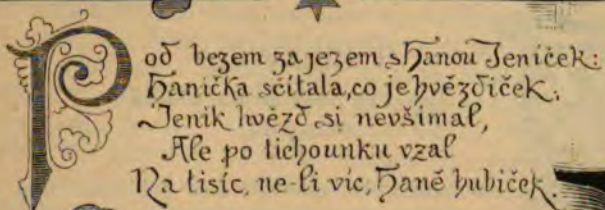 Pod bezem za jezem s Hanou Jeníček:
Hanička sčítala, co je hvězdiček;
Jeník hvězd si nevšímal,
Ale po tichounku vzal
Na tisíc, ne-li víc, Haně hubiček.